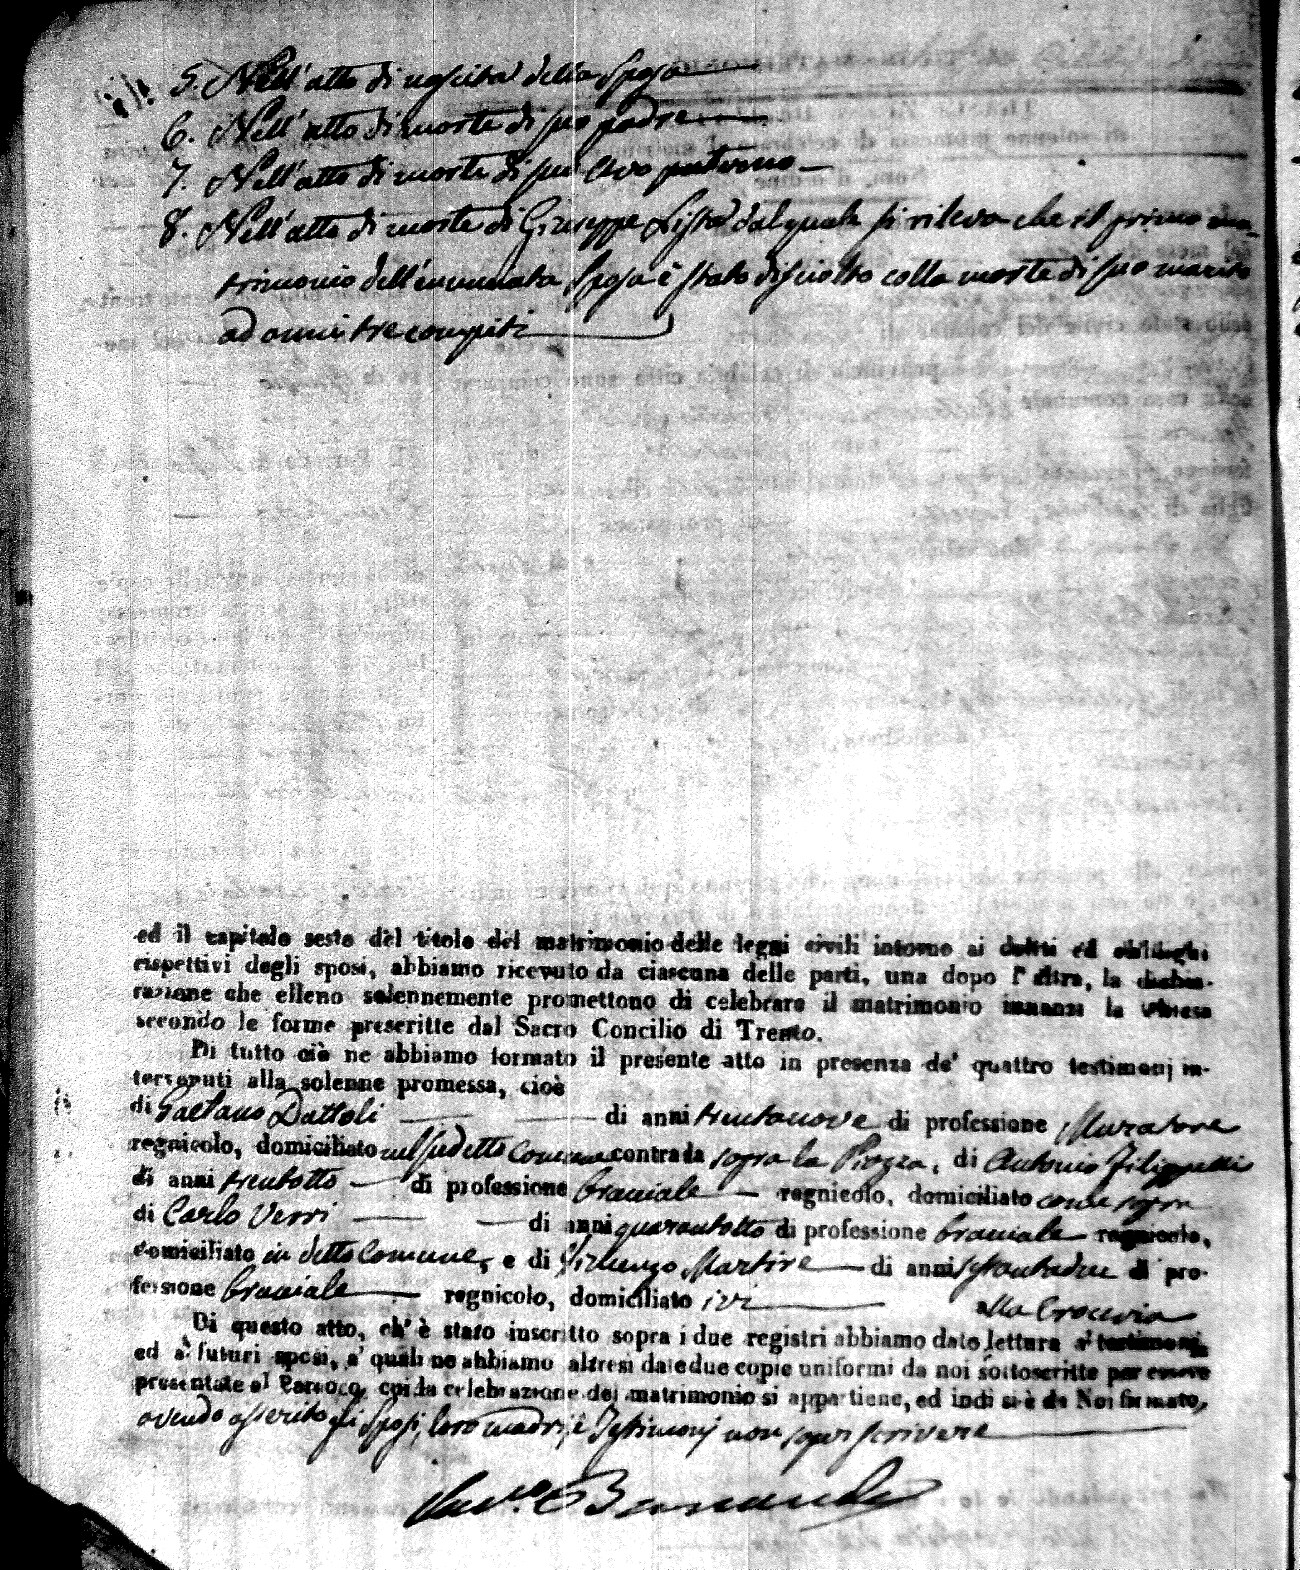 5. Nell'atto di nascita della Sposa
6. Nell'atto di morte di suo padre
7. Nell'atto di morte di suo avo paterno
8. Nell'atto di morte di Giuseppe Lista dal quale si rileva che il primo ma-
trimonio dell'enunciata Sposa è stato disciolto colla morte di suo marito
ad anni tre compiti
ed il capitolo sesto del titolo del matrimonio delle leggi civili intorno ai dritti ed obblighi
rispettivi degli sposi, abbiamo ricevuto da ciascuna delle parti, una dopo l'altra, la dichia-
razione che elleno solennemente promettono di celebrare il matrimonio innanzi la Chiesa
secondo le forme prescritte dal Sacro Concilio di Trento.
Di tutto ciò ne abbiamo formato il presente atto in presenza de' quattro testimonj in-
tervenuti alla solenne promessa, cioè
di Gaetano Dattoli di anni trentanove di professione Muratore
regnicolo, domiciliato nel sudetto Comune contrada sopra la Piazza, di Antonio Filippelli
di anni trentotto di professione bracciale regnicolo, domiciliato come sopra
di Carlo Verri di anni quarantotto di professione bracciale regnicolo,
domiciliato in detto Comune, e di Vincenzo Martire di anni settantadue di pro-
fessione bracciale regnicolo, domiciliato ivi alla Crocevia
Di questo atto, ch'è stato inscritto sopra i due registri abbiamo dato lettura a' testimonj,
ed a' futuri sposi, a' quali ne abbiamo altresì date due copie uniformi da noi sottoscritte per essere
presentate al Parroco, cui la celebrazione del matrimonio si appartiene, ed indi si è da Noi firmato,
avendo asserito gli Sposi, loro madri, e Testimonj non saper scrivere